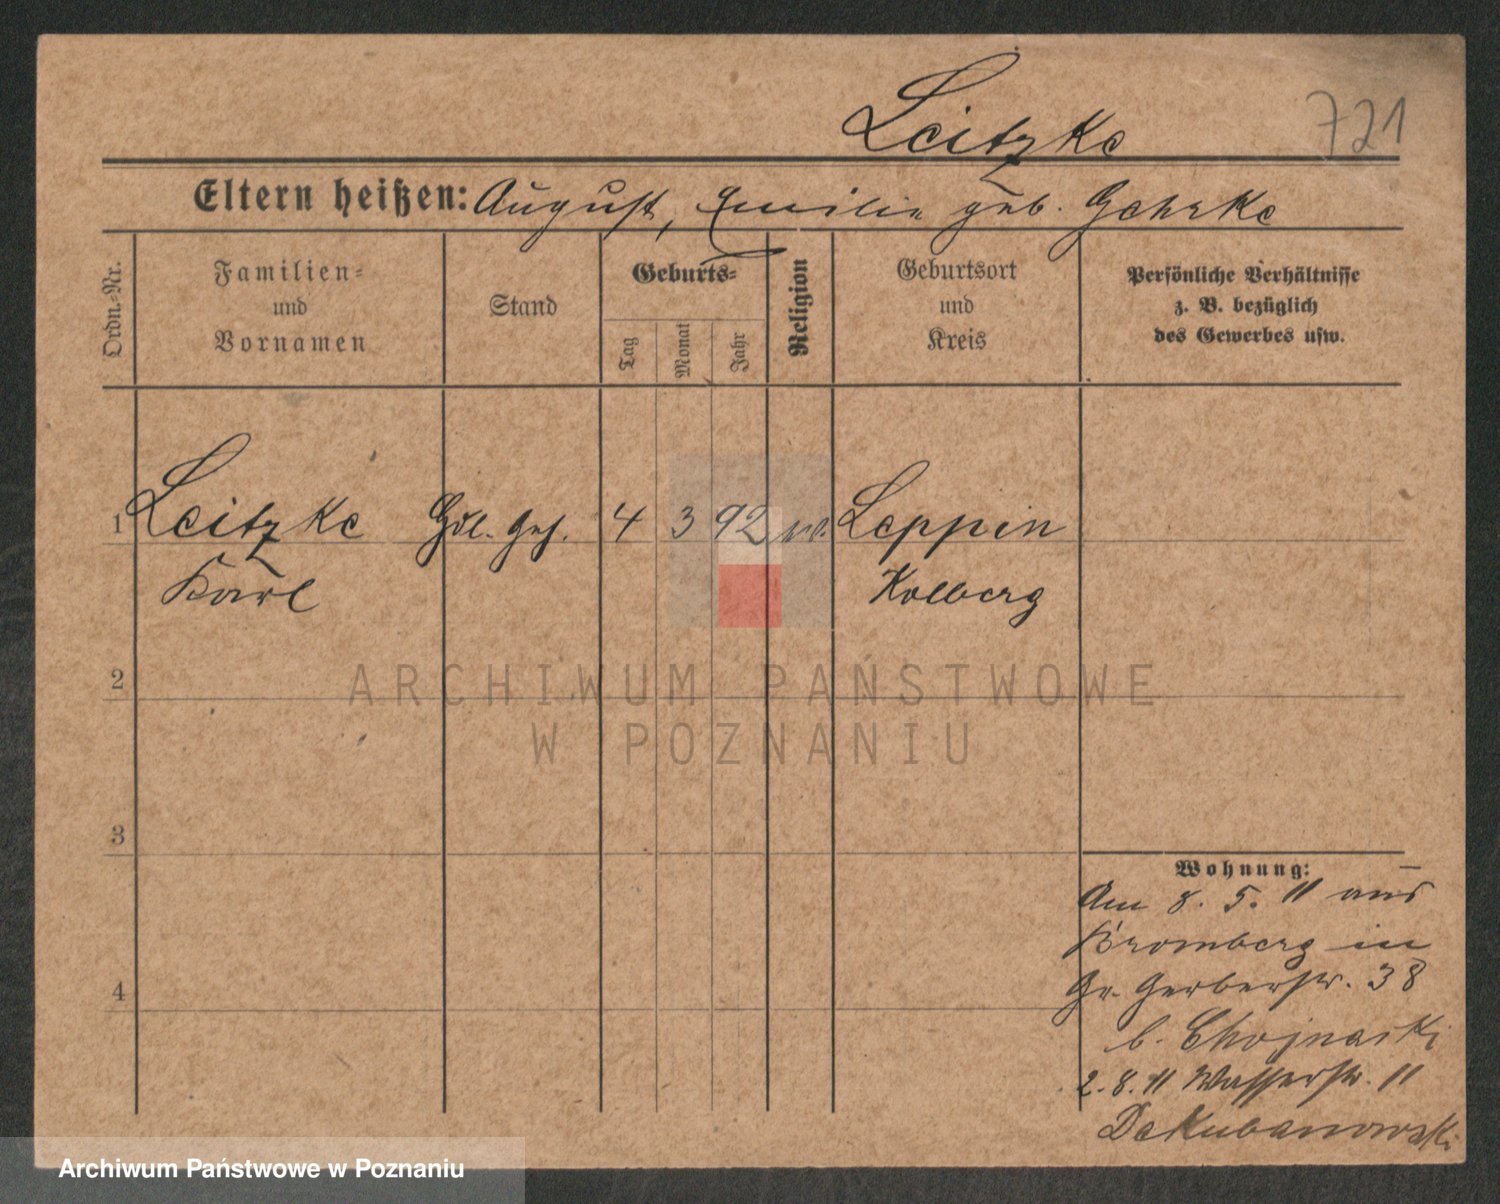 Leitzke
721
Eltern heißen: August, Emilie geb. Gehrke
Ordn.-Nr.
Familien-
und
Vornamen
Stand
Geburts-
Tag
Monat
Jahr
Religion
Geburtsort
und
Kreis
Persönliche Verhältnisse
z. B. bezüglich
des Gewerbes usw.
1 Leitzke Hdl. Geh. 4 3 92 ev. Leppin
Karl Kolberg
2
ARCHIWUM PAŃSTWOWE
W POZNANIU
3
Wohnung:
Am 8. 5. 11 aus
Bromberg in
4
Gr. Gerberstr. 38
b. Chojnacki
2. 8. 11 Wasserstr. 11
Archiwum Państwowe w Poznaniu